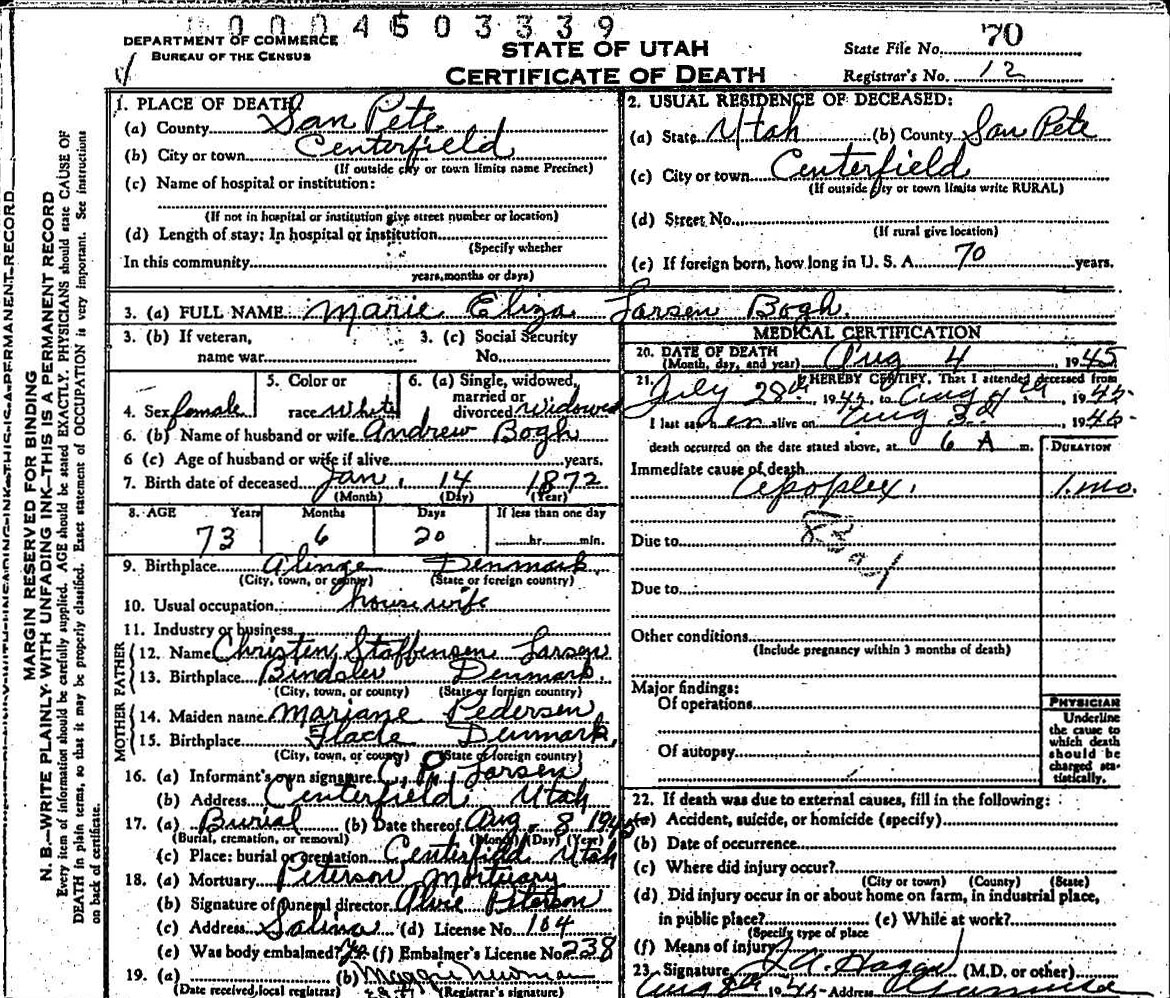 0000450 3339
DEPARTMENT OF COMMERCE
BUREAU OF THE CENSUS
STATE OF UTAH
CERTIFICATE OF DEATH
State File No. 70
Registrar's No. 12
MARGIN RESERVED FOR BINDING
N. B.—WRITE PLAINLY WITH UNFADING INK—THIS IS A PERMANENT RECORD
Every item of information should be carefully supplied. AGE should be stated EXACTLY. PHYSICIANS should state CAUSE OF
DEATH in plain terms, so that it may be properly classified. Exact statement of OCCUPATION is very important. See instructions
on back of certificate.
1. PLACE OF DEATH:
(a) County San Pete
(b) City or town Centerfield
(If outside city or town limits name Precinct)
(c) Name of hospital or institution:
(If not in hospital or institution give street number or location)
(d) Length of stay: In hospital or institution
(Specify whether
In this community
years, months or days)
2. USUAL RESIDENCE OF DECEASED:
(a) State Utah (b) County San Pete
(c) City or town Centerfield
(If outside city or town limits write RURAL)
(d) Street No.
(If rural give location)
(e) If foreign born, how long in U. S. A. 70 years.
3. (a) FULL NAME Marie Eliza Larsen Bogh
3. (b) If veteran, name war
3. (c) Social Security No.
4. Sex female
5. Color or race White
6. (a) Single, widowed, married or divorced widowed
6. (b) Name of husband or wife Andrew Bogh
6 (c) Age of husband or wife if alive years.
7. Birth date of deceased Jan. 14 1872
(Month) (Day) (Year)
8. AGE Years Months Days If less than one day
73 6 20 hr. min.
9. Birthplace Alinge Denmark
(City, town, or county) (State or foreign country)
10. Usual occupation housewife
11. Industry or business
FATHER
12. Name Christen Staffensen Larsen
13. Birthplace Bindslev Denmark.
(City, town, or county) (State or foreign country)
MOTHER
14. Maiden name Mariane Pedersen
15. Birthplace Flade Denmark.
(City, town, or county) (State or foreign country)
16. (a) Informant's own signature C. P. Larsen
(b) Address Centerfield Utah
17. (a) Burial (b) Date thereof Aug. 8 1945
(Burial, cremation, or removal) (Month) (Day) (Year)
(c) Place: burial or cremation Centerfield Utah
18. (a) Mortuary Peterson Mortuary
(b) Signature of funeral director Alvie Peterson
(c) Address Salina (d) License No. 164
(e) Was body embalmed? (f) Embalmer's License No. 238
19. (a) (b) Maggie Newman
(Date received local registrar) (Registrar's signature)
MEDICAL CERTIFICATION
20. DATE OF DEATH
(Month, day, and year) Aug 4, 1945
21. I HEREBY CERTIFY, That I attended deceased from
July 28th, 1945, to Aug 4th, 1945
I last saw er alive on Aug 3d 1945
death occurred on the date stated above, at 6 A m.
DURATION
Immediate cause of death
Apoplex. 1. mo.
83 a
Due to
Due to
Other conditions
(Include pregnancy within 3 months of death)
Major findings:
Of operations
Of autopsy
PHYSICIAN
Underline
the cause to
which death
should be
charged sta-
tistically.
22. If death was due to external causes, fill in the following:
(a) Accident, suicide, or homicide (specify)
(b) Date of occurrence
(c) Where did injury occur?
(City or town) (County) (State)
(d) Did injury occur in or about home on farm, in industrial place,
in public place? (e) While at work?
(Specify type of place
(f) Means of injury
23. Signature Hagan (M.D. or other)
Aug 8th 1945 Address Gunnison